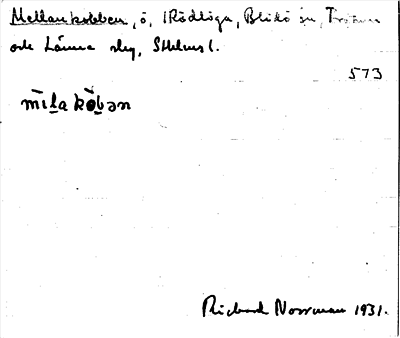 Mellankobben, ö, i Rödlöga, Blidö sn, Frötuna
och Länna slg, Sthlms l.
573
mìlakòbən
Richard Norrman 1931.